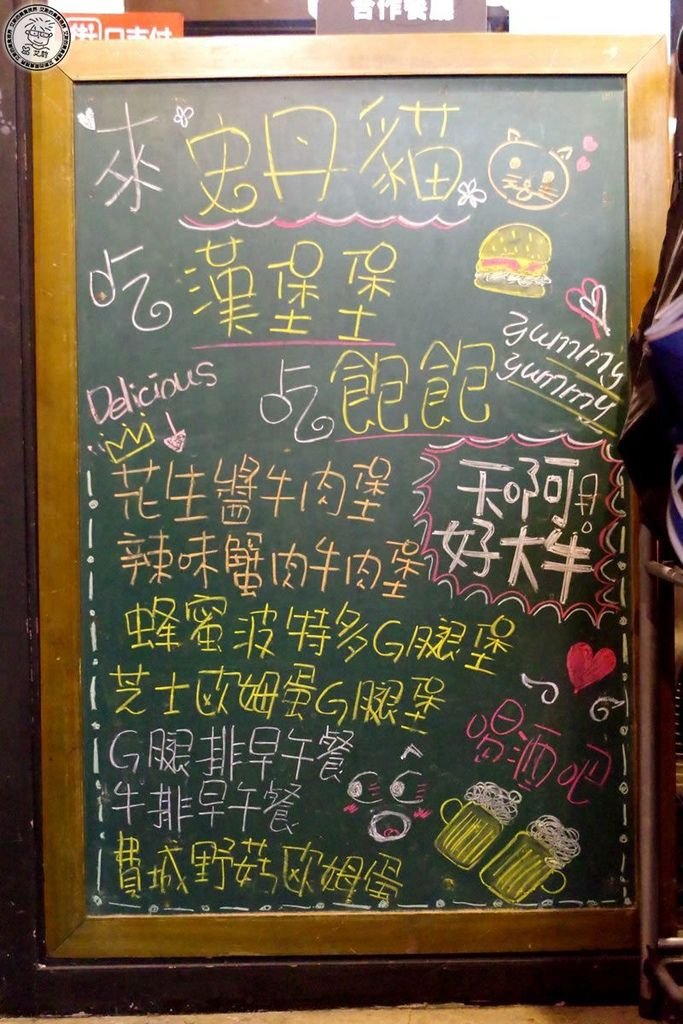 合作餐廳
來 史丹貓
吃 漢堡堡
yummy
yummy
Delicious
吃 飽飽
天啊
好大牛
花生醬牛肉堡
辣味蟹肉牛肉堡
蜂蜜波特多G腿堡
芝士歐姆蛋G腿堡
G腿排早午餐
牛排早午餐
費城野菇歐姆蛋
喝酒吧